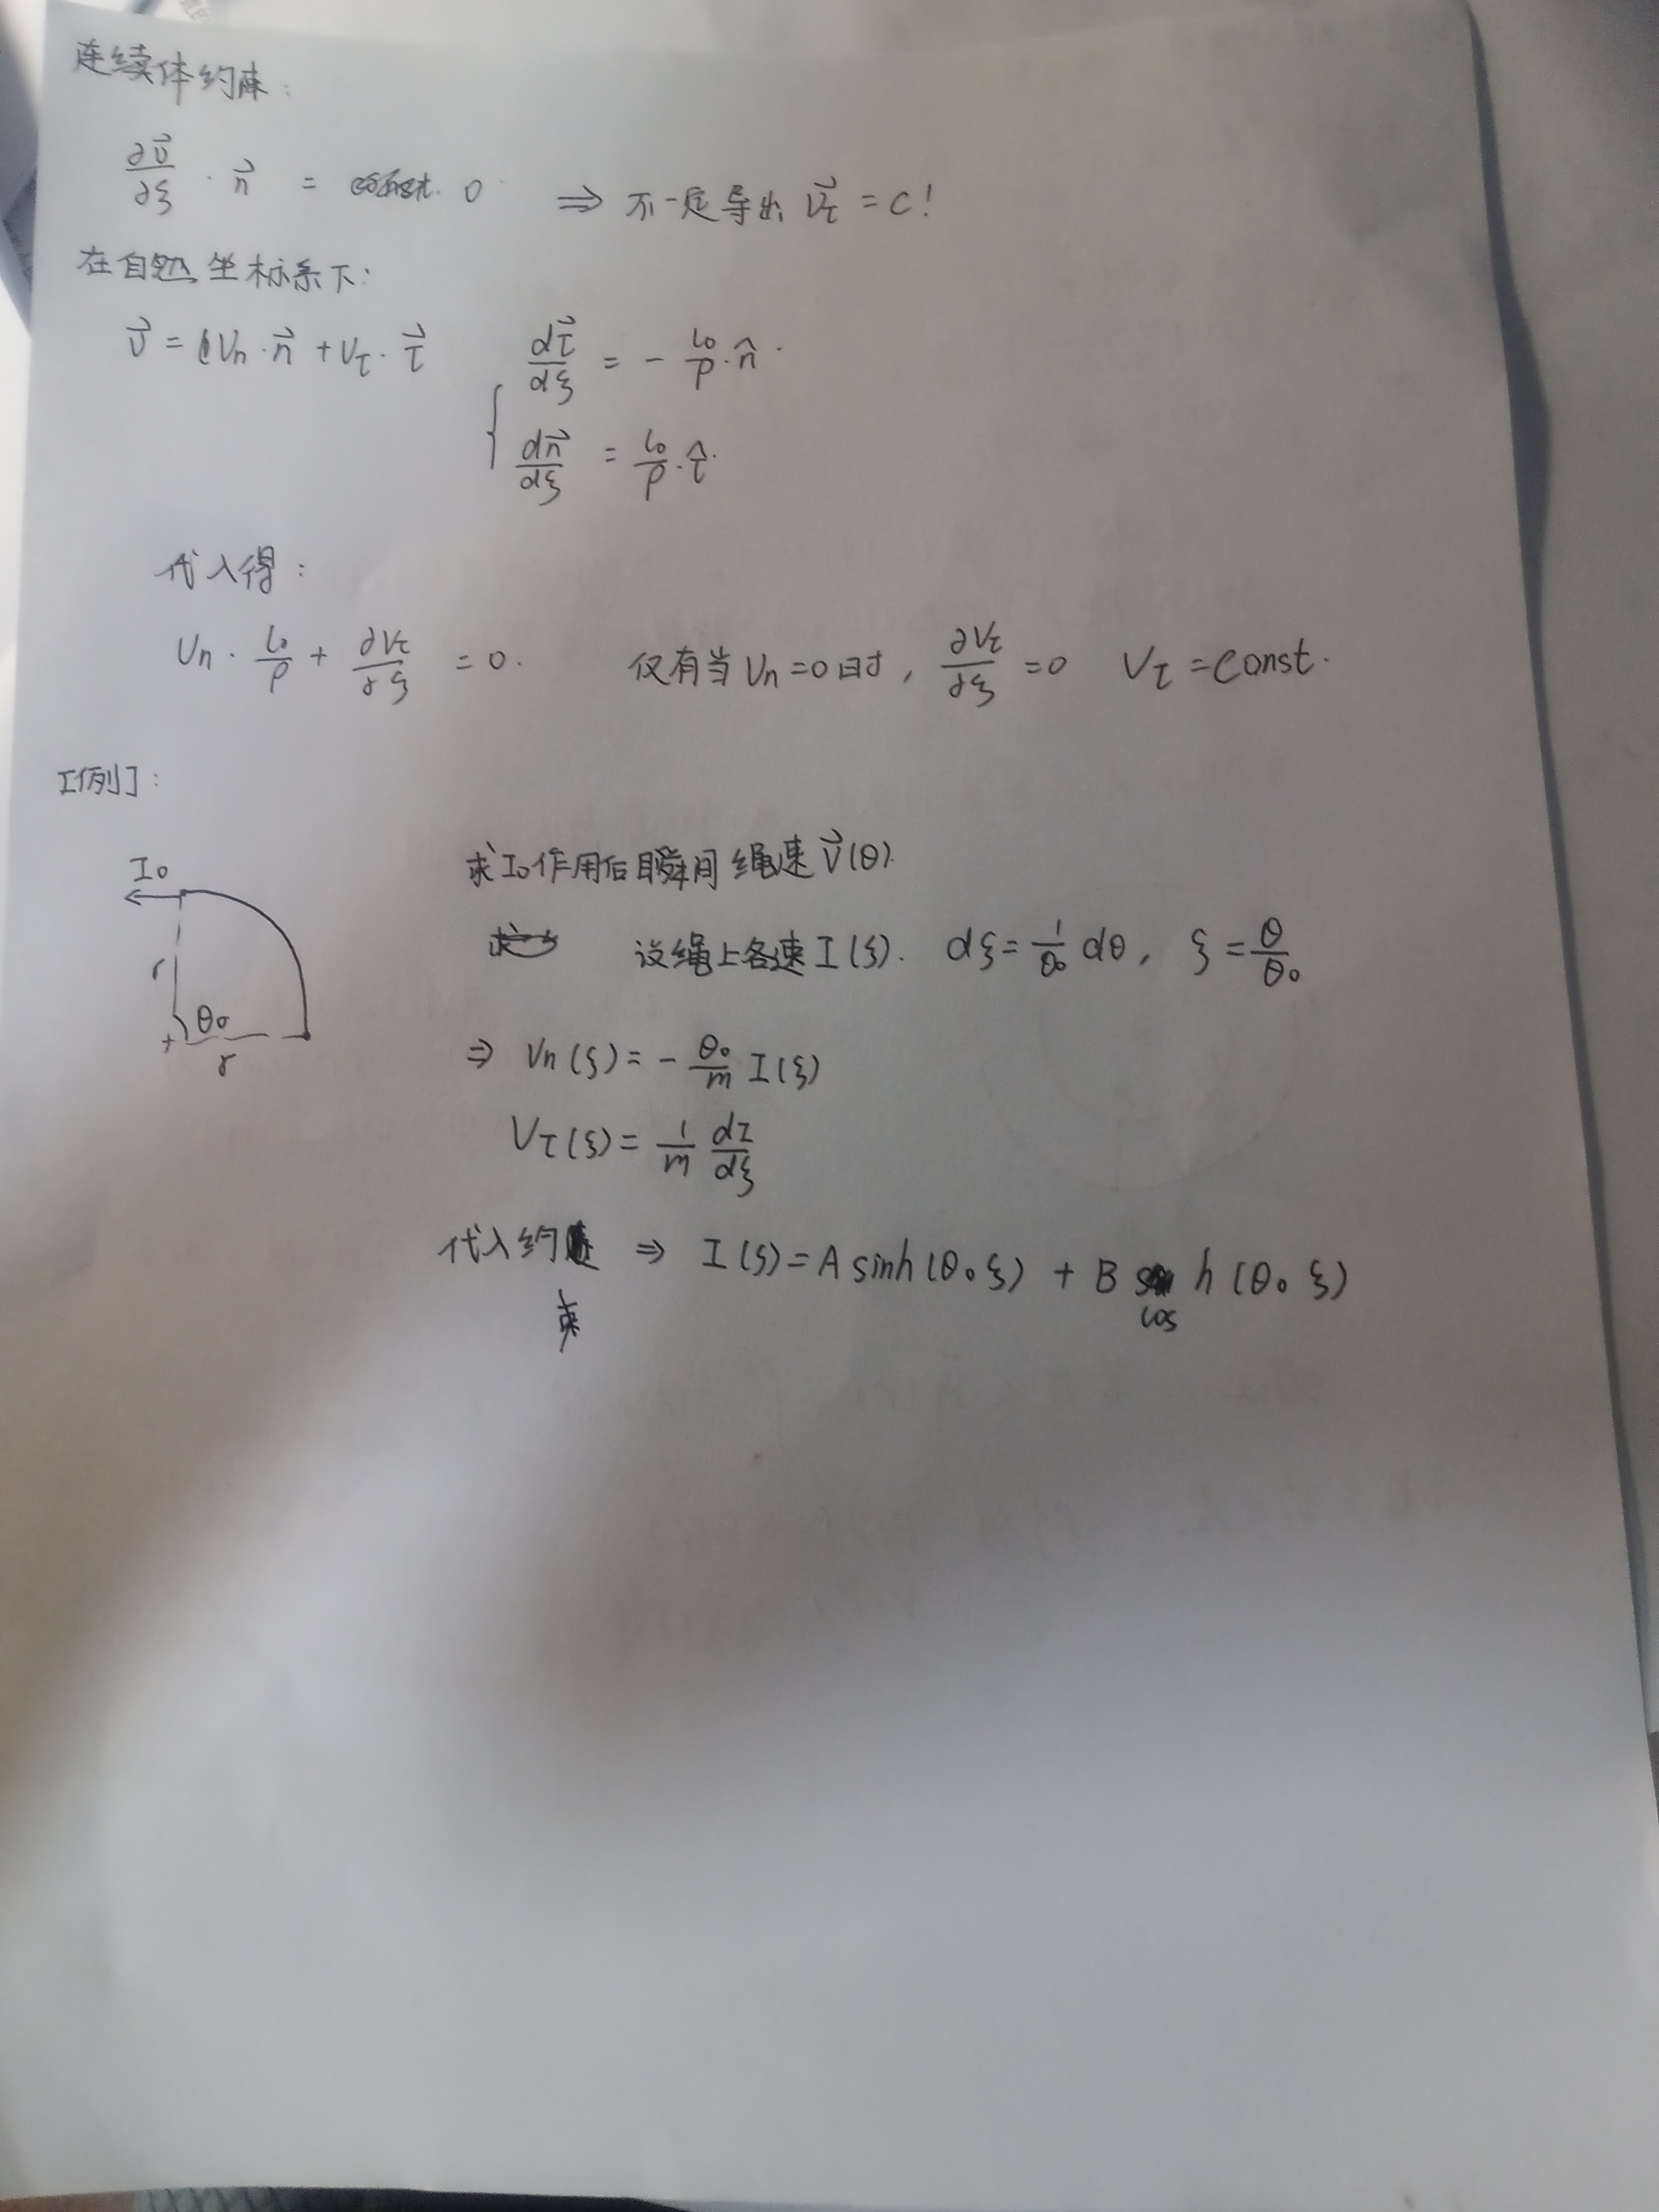 连续体约束:
∂v⃗/∂ξ · n⃗ = 0 ⇒ 不一定导出 v⃗τ = C!
在自然坐标系下:
v⃗ = Vn·n⃗ + Vτ·τ⃗ dτ⃗/dξ = - l₀/ρ · n̂.
dn⃗/dξ = l₀/ρ · τ̂.
代入得:
Vn · l₀/ρ + ∂Vτ/∂ξ = 0. 仅有当 Vn=0时, ∂Vτ/∂ξ =0 Vτ = Const.
[例]:
I₀
r
θ₀
r
求I₀作用后瞬间绳速 V⃗(θ).
设绳上各速 I(ξ). dξ = 1/θ₀ dθ, ξ = θ/θ₀
⇒ Vn(ξ) = - θ₀/m I(ξ)
Vτ(ξ) = 1/m dI/dξ
代入约束 ⇒ I(ξ) = A sinh(θ₀ξ) + B cosh(θ₀ξ)